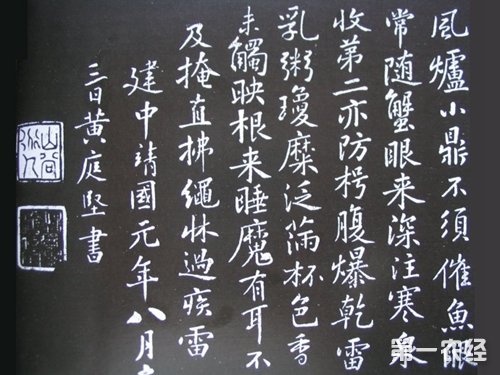 風爐小鼎不須催魚眼
常随蟹眼来深注寒泉
收第二亦防枵腹爆乾雷
乳粥瓊糜泛滿杯色香
未觸映根来睡魔有耳不
及掩直拂繩牀過疾雷
建中靖國元年八月
三日黃庭堅書
山谷道人
第一农经